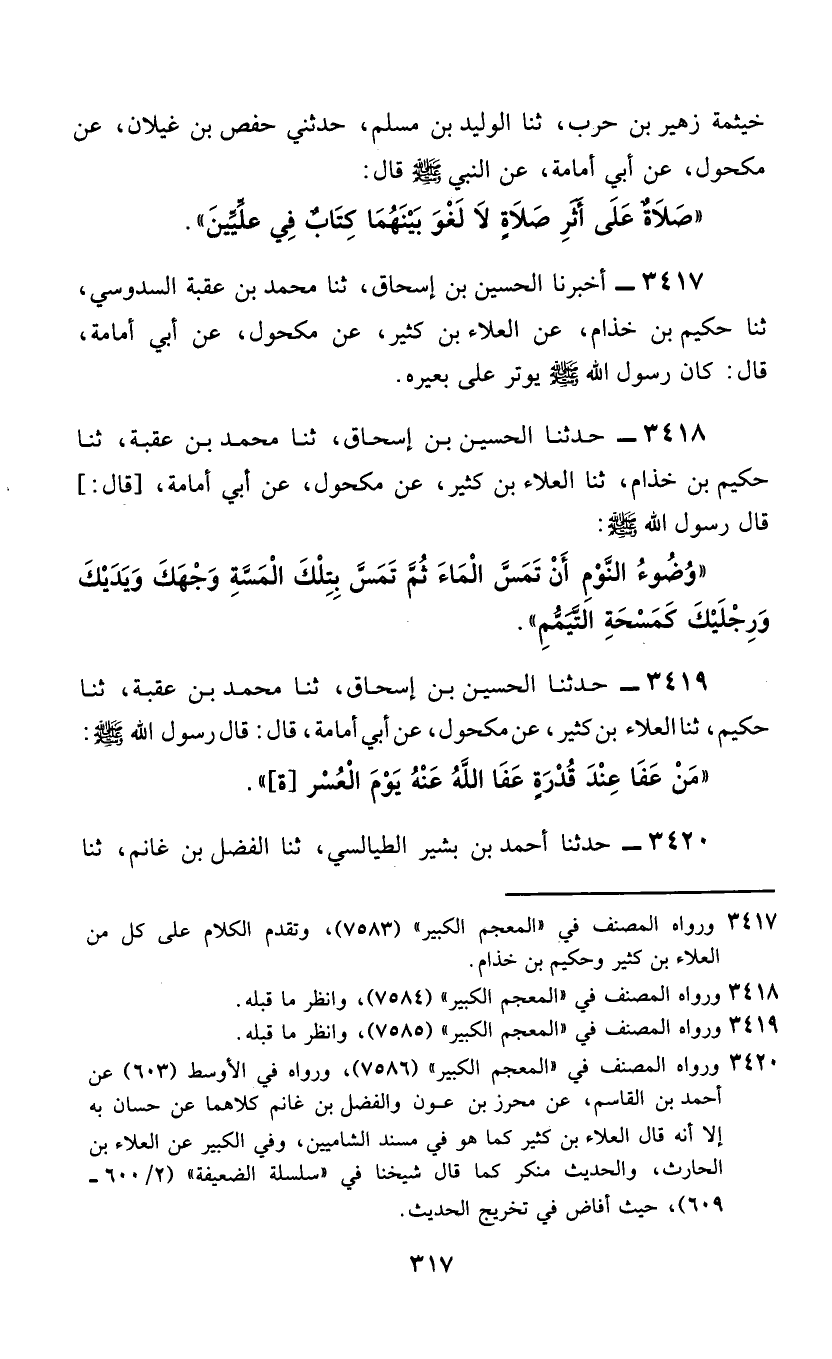 خيثمة زهير بن حرب، ثنا الوليد بن مسلم، حدثني حفص بن غيلان، عن
مكحول، عن أبي أمامة، عن النبي ﷺ قال:
«صَلَاةٌ عَلَى أَثَرِ صَلَاةٍ لَا لَغْوَ بَيْنَهُمَا كِتَابٌ فِي عِلِّيِّينَ».
٣٤١٧ ـ أخبرنا الحسين بن إسحاق، ثنا محمد بن عقبة السدوسي،
ثنا حكيم بن خذام، عن العلاء بن كثير، عن مكحول، عن أبي أمامة،
قال: كان رسول الله ﷺ يوتر على بعيره.
٣٤١٨ ـ حدثنا الحسين بن إسحاق، ثنا محمد بن عقبة، ثنا
حكيم بن خذام، ثنا العلاء بن كثير، عن مكحول، عن أبي أمامة، [قال:]
قال رسول الله ﷺ:
«وُضُوءُ النَّوْمِ أَنْ تَمَسَّ الْمَاءَ ثُمَّ تَمَسَّ بِتِلْكَ الْمَسَّةِ وَجْهَكَ وَيَدَيْكَ
وَرِجْلَيْكَ كَمَسْحَةِ التَّيَمُّمِ».
٣٤١٩ ـ حدثنا الحسين بن إسحاق، ثنا محمد بن عقبة، ثنا
حكيم، ثنا العلاء بن كثير، عن مكحول، عن أبي أمامة، قال: قال رسول الله ﷺ:
«مَنْ عَفَا عِنْدَ قُدْرَةٍ عَفَا اللَّهُ عَنْهُ يَوْمَ الْعُسْر [ة]».
٣٤٢٠ ـ حدثنا أحمد بن بشير الطيالسي، ثنا الفضل بن غانم، ثنا
٣٤١٧ ورواه المصنف في «المعجم الكبير» (٧٥٨٣)، وتقدم الكلام على كل من
العلاء بن كثير وحكيم بن خذام.
٣٤١٨ ورواه المصنف في «المعجم الكبير» (٧٥٨٤)، وانظر ما قبله.
٣٤١٩ ورواه المصنف في «المعجم الكبير» (٧٥٨٥)، وانظر ما قبله.
٣٤٢٠ ورواه المصنف في «المعجم الكبير» (٧٥٨٦)، ورواه في الأوسط (٦٠٣) عن
أحمد بن القاسم، عن محرز بن عون والفضل بن غانم كلاهما عن حسان به
إلا أنه قال العلاء بن كثير كما هو في مسند الشاميين، وفي الكبير عن العلاء بن
الحارث، والحديث منكر كما قال شيخنا في «سلسلة الضعيفة» (٢/ ٦٠٠ ـ
٦٠٩)، حيث أفاض في تخريج الحديث.
٣١٧